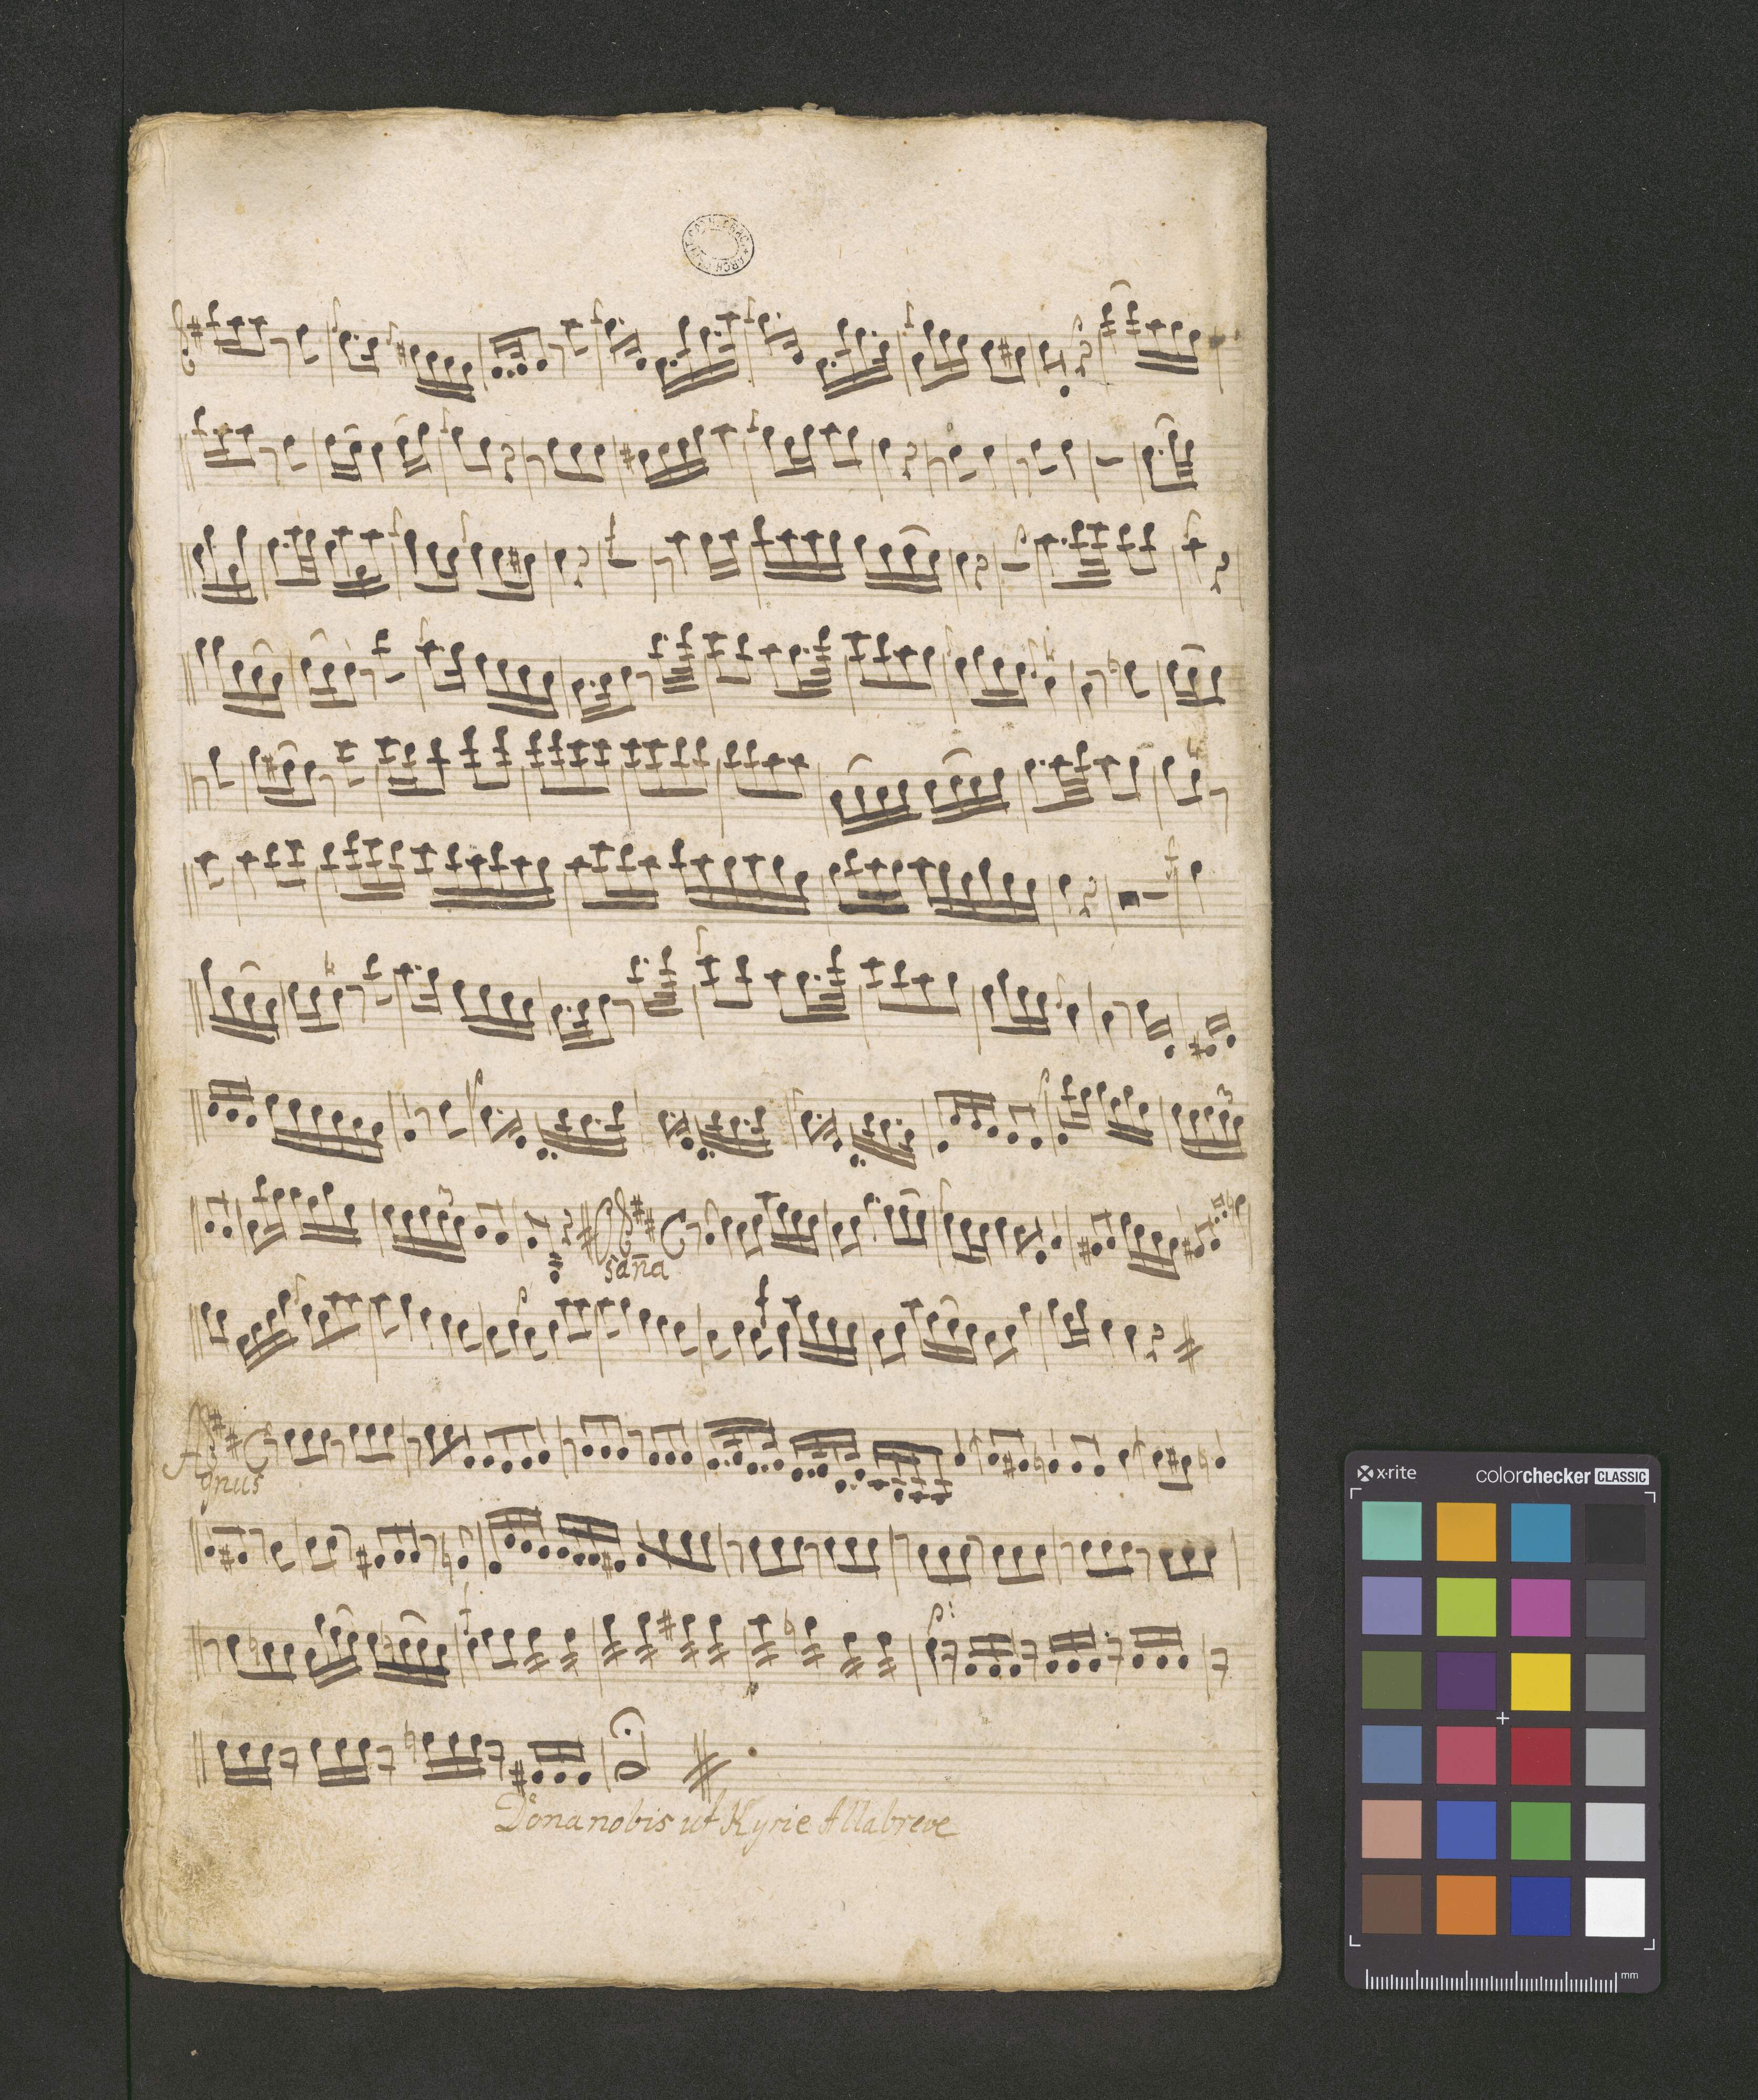 Osaña
Agnus
x-rite
colorchecker CLASSIC
mm
Dona nobis ut Kyrie Allabreve